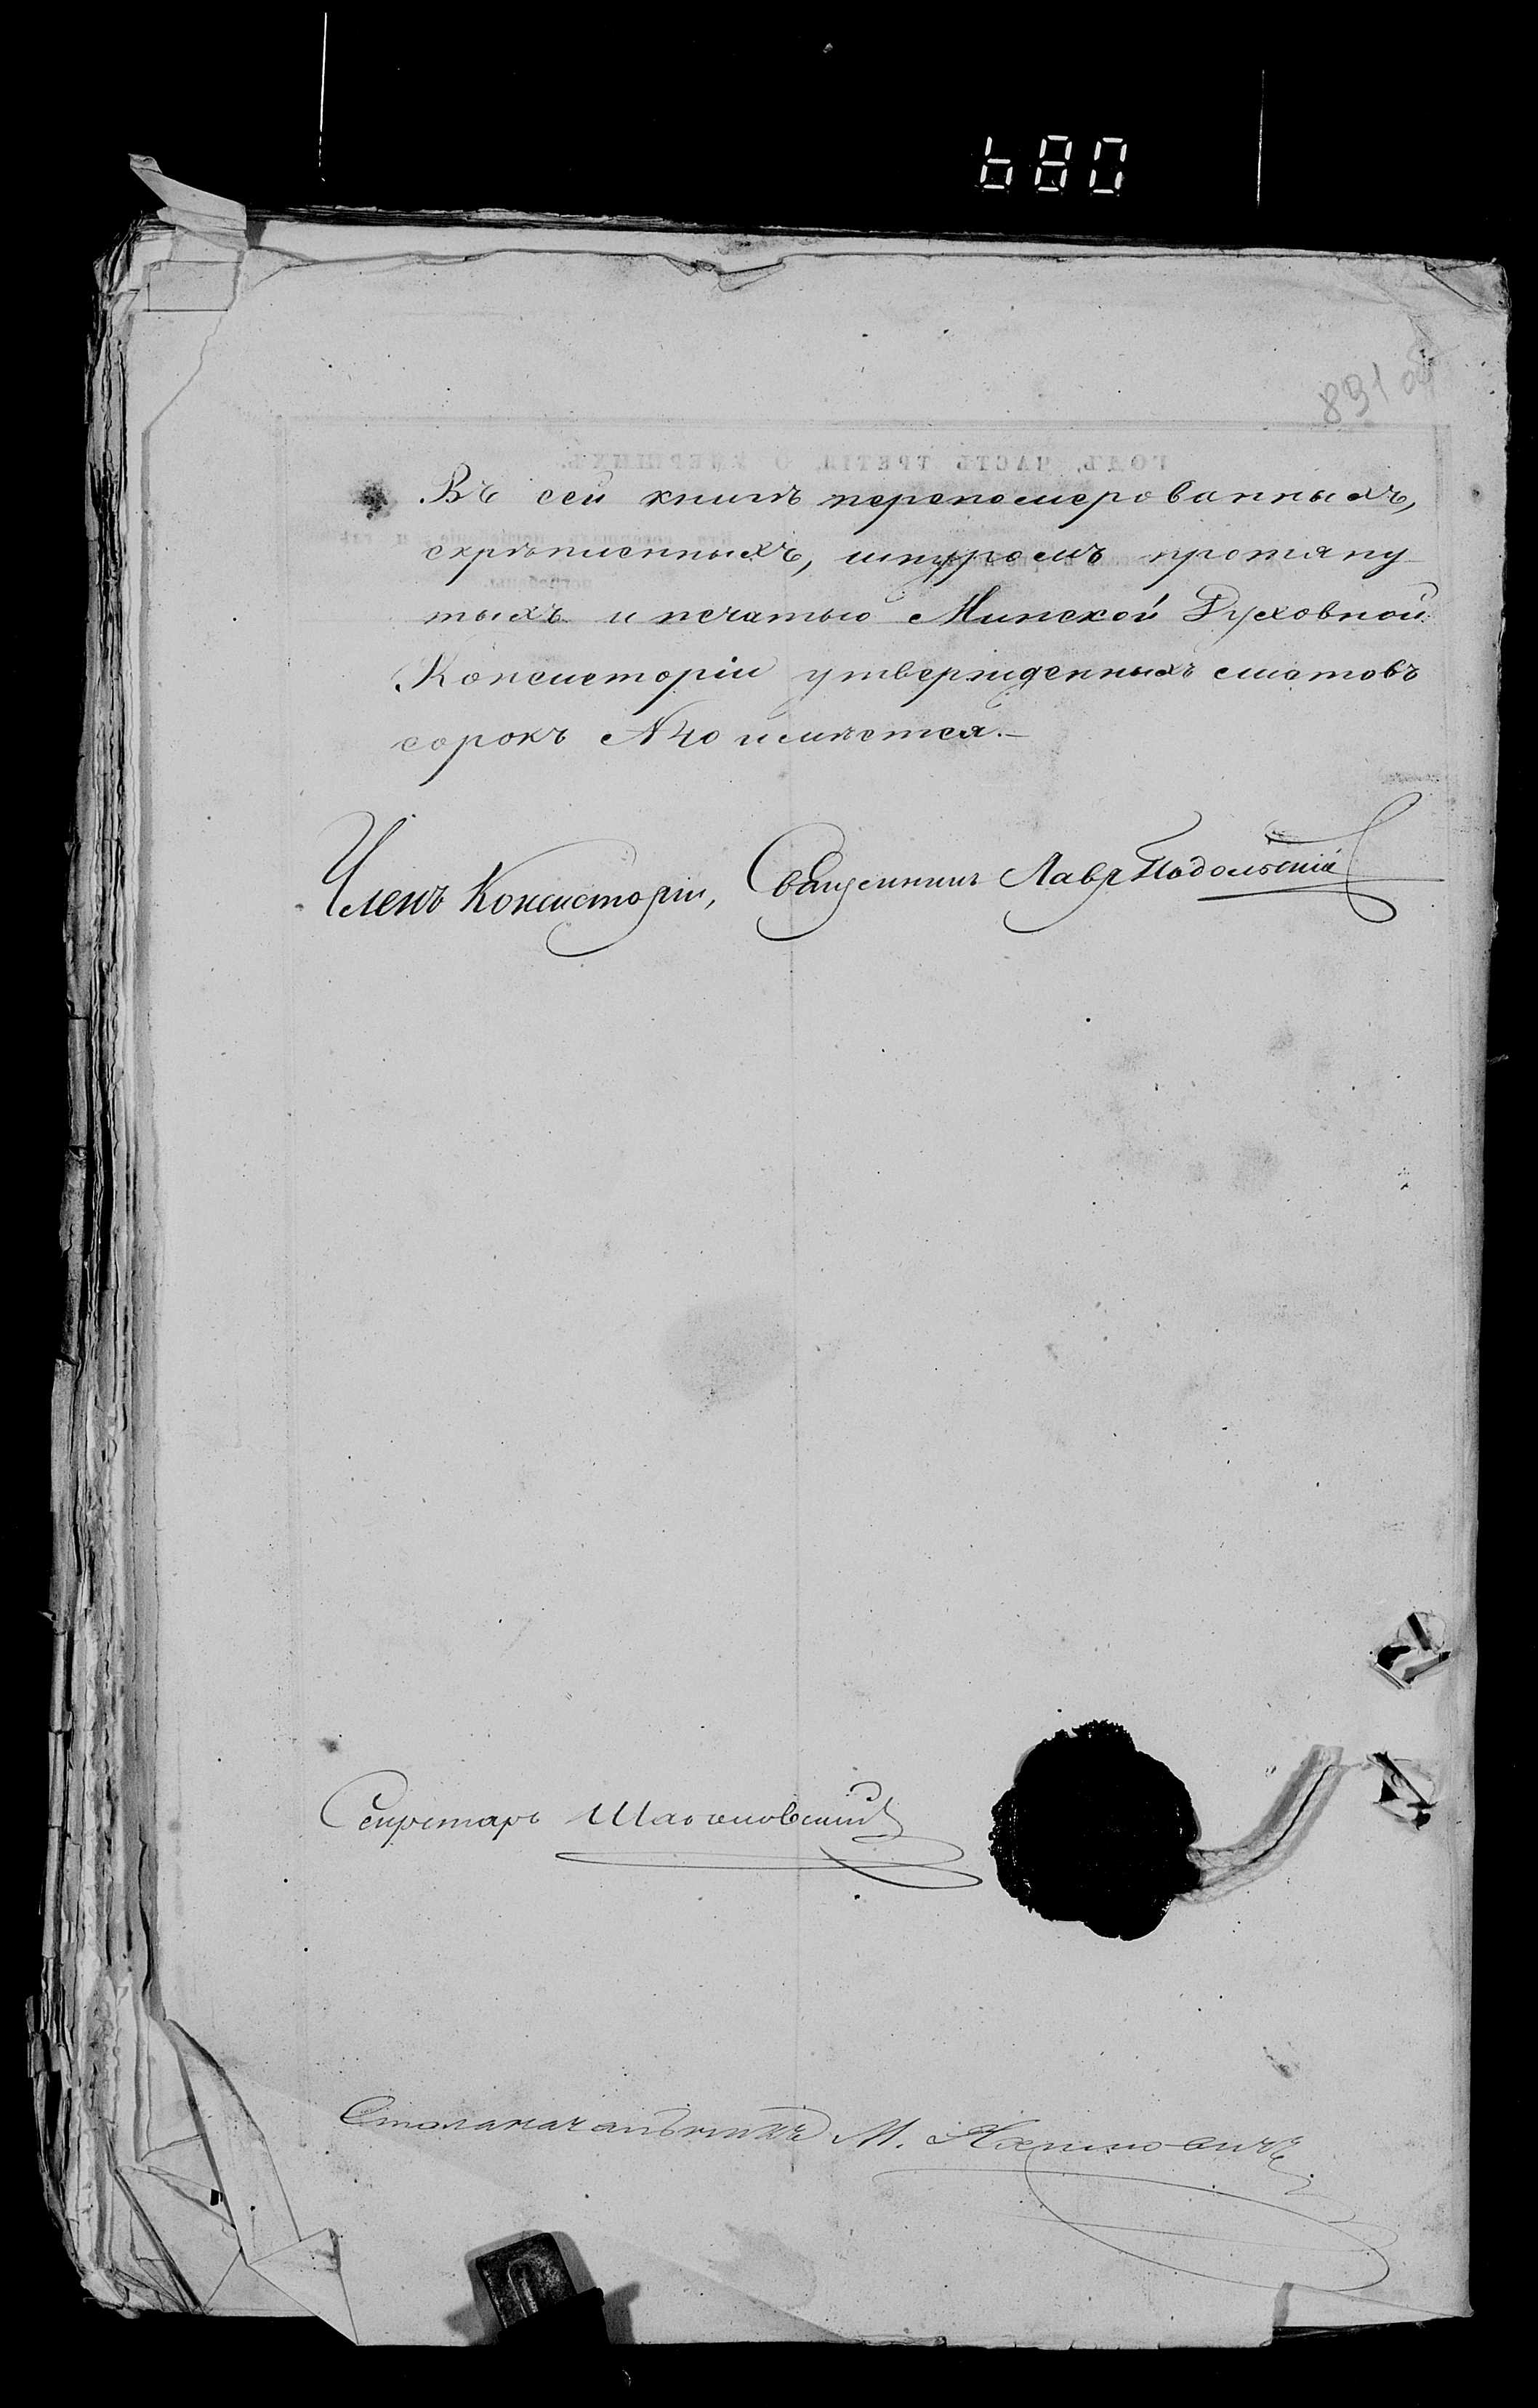 680
891 об
Въ сей книгѣ перепомерованныхъ,
скрѣпленныхъ, шнуромъ протяну-
тыхъ и печатью Минской Духовной
Консисторіи утвержденныхъ листовъ
сорокъ № 40 имѣется.—
Членъ Консисторіи, Священникъ Лавръ Подольскій
Секретарь
Столоначальникъ М.